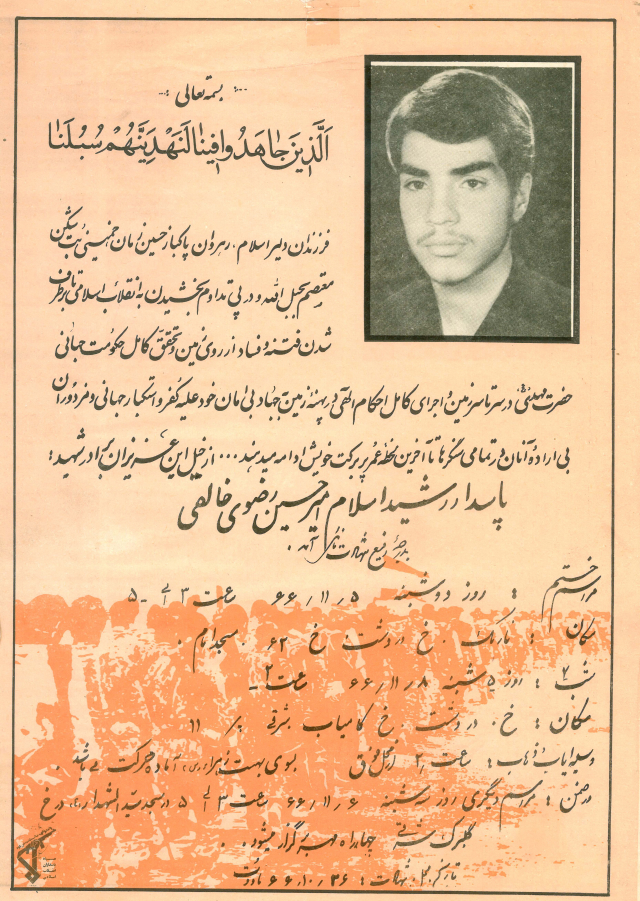 بسمه تعالی
اَلَّذینَ جاهَدُوا فینا لَنَهْدِیَنَّهُمْ سُبُلَنا
فرزندان دلیر اسلام، رهروان پاکباز حسین زمان خمینی بت شکن
معتصم بحبل الله و در پی تداوم بخشیدن به انقلاب اسلامی تا برطرف
شدن فتنه و فساد از روی زمین و تحقق کامل حکومت جهانی
حضرت مهدی در سرتاسر زمین و اجرای کامل احکام الهی در پهنه زمین به جهاد بی امان خود علیه کفر و استکبار جهانی و مزدوران
بی اراده آنان در تمامی سنگرها تا آخرین لحظه عمر پر برکت خویش ادامه میدهند ... از خیل این عزیزان برادر شهید:
پاسدار رشید اسلام امیرحسین رضوی خالقی
بدرجه رفیع شهادت نائل آمد.
مراسم ختم : روز دوشنبه ۶۶/۱۱/۵ ساعت ۳ الی ۵
مکان : نارمک. خ دردشت. خ ۶۲. مسجد امام.
شب ۷ : روز ۵شنبه ۶۶/۱۱/۸ ساعت ۲
مکان : خ. دردشت. خ کامیاب شرقی پ/ ۱۱
وسیله ایاب ذهاب : ساعت ۲ از محل فوق بسوی بهشت زهرا آماده حرکت می باشد.
در ضمن : مراسم دیگری روز سه شنبه ۶۶/۱۱/۶ ساعت ۳ الی ۵ در مسجد سید الشهداء در خ
گلبرگ شرقی چهارراه برگزار میشود.
تاریخ شهادت : ۶۶/۱۰/۲۶